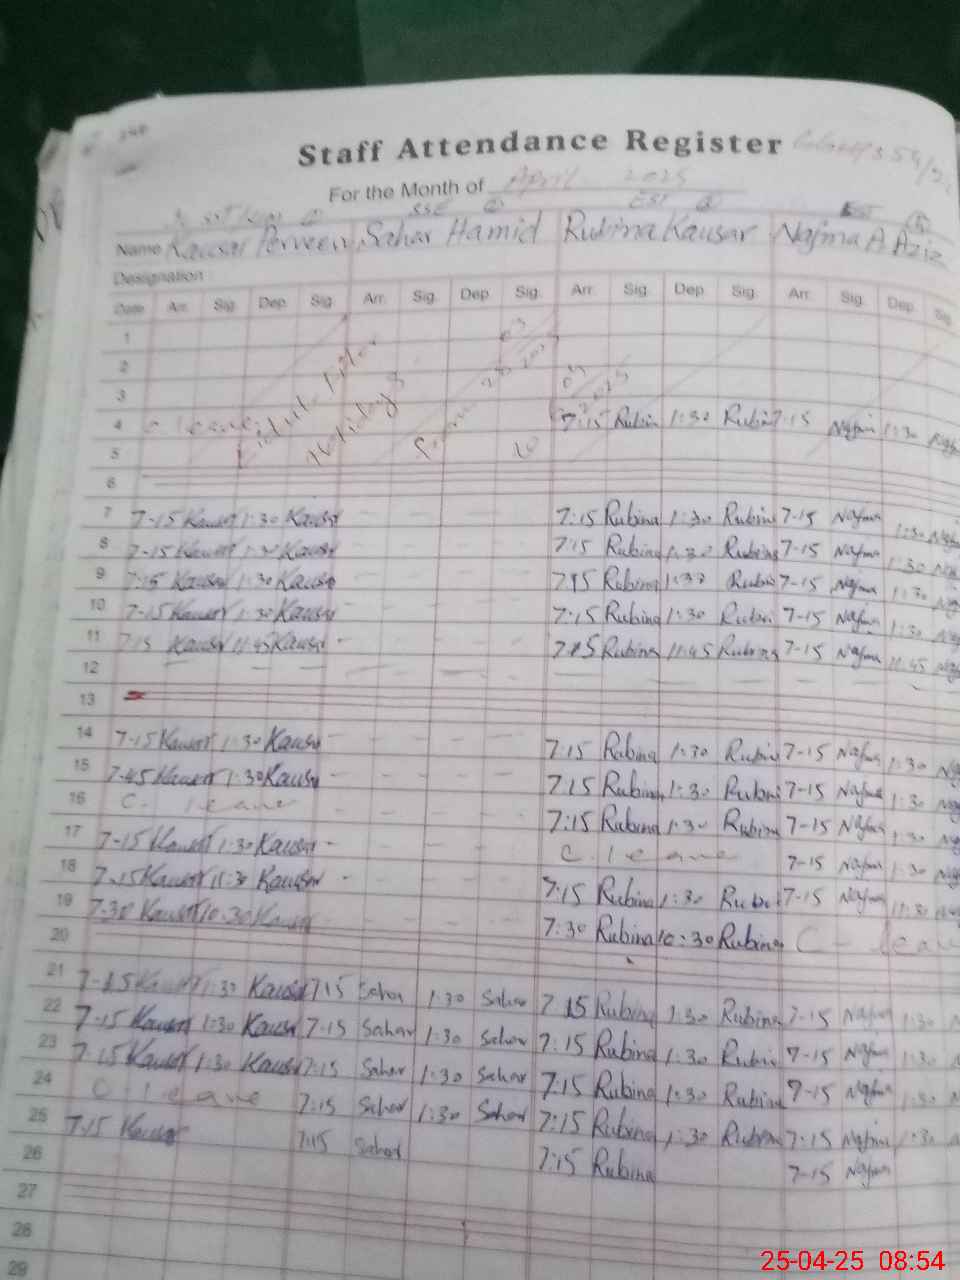 Staff Attendance Register
For the Month of April 2025
SSE EST
Name Kausar Perveen Sahar Hamid Rubina Kausar Najma A Aziz
Designation
Date Arr. Sig. Dep. Sig. Arr. Sig. Dep. Sig. Arr. Sig. Dep. Sig. Arr. Sig. Dep. Sig.
1
2
3
4 c leave Holidays From 7:15 Rubin 1:30 Rubin 7-15 Najm 1:30
5
6
7 7-15 Kausar 1:30 Kausar - - - - 7:15 Rubina 1:30 Rubina 7-15 Najma 1:30 Na
8 7-15 Kausar 1:30 Kausar - - - - 7:15 Rubina 1:30 Rubina 7-15 Najma 1:30 Na
9 7:15 Kausar 1:30 Kausar - - - - 7:15 Rubina 1:30 Rubin 7-15 Najma 1:30
10 7-15 Kausar 1:30 Kausar - - - - 7:15 Rubina 1:30 Rubin 7-15 Najma 1:30
11 7:15 Kausar 11:45 Kausar - - - - 7:15 Rubina 11:45 Rubina 7-15 Najma 11:45
12 - - - - - - - - - - - - - - -
13
14 7-15 Kausar 1:30 Kausar - - - - 7:15 Rubina 1:30 Rubin 7-15 Najma 1:30
15 7-45 Kausar 1:30 Kausar - - - - 7:15 Rubina 1:30 Rubin 7-15 Najma 1:30
16 C. leave - - - - 7:15 Rubina 1:30 Rubina 7-15 Najma 1:30
17 7-15 Kausar 1:30 Kausar - - - - C. leave 7-15 Najma 1:30
18 7-15 Kausar 11:30 Kausar - - - - 7:15 Rubina 1:30 Rubi 7-15 Najma 11:30
19 7-30 Kausar 10:30 Kausar - - - - 7:30 Rubina 10:30 Rubina C - leav
20
21 7-15 Kausar 1:30 Kausar 7:15 Sahar 1:30 Sahar 7:15 Rubina 1:30 Rubina 7-15 Najma 1:30
22 7-15 Kausar 1:30 Kausar 7-15 Sahar 1:30 Sahar 7:15 Rubina 1:30 Rubin 7-15 Najma 1:30
23 7:15 Kausar 1:30 Kausar 7:15 Sahar 1:30 Sahar 7:15 Rubina 1:30 Rubina 7-15 Najma 1:30
24 C leave 7:15 Sahar 1:30 Sahar 7:15 Rubina 1:30 Rubina 7-15 Najma 1:30
25 7:15 Kausar 7:15 Sahar 7:15 Rubina 7-15 Najma
26
27
28
29
25-04-25 08:54